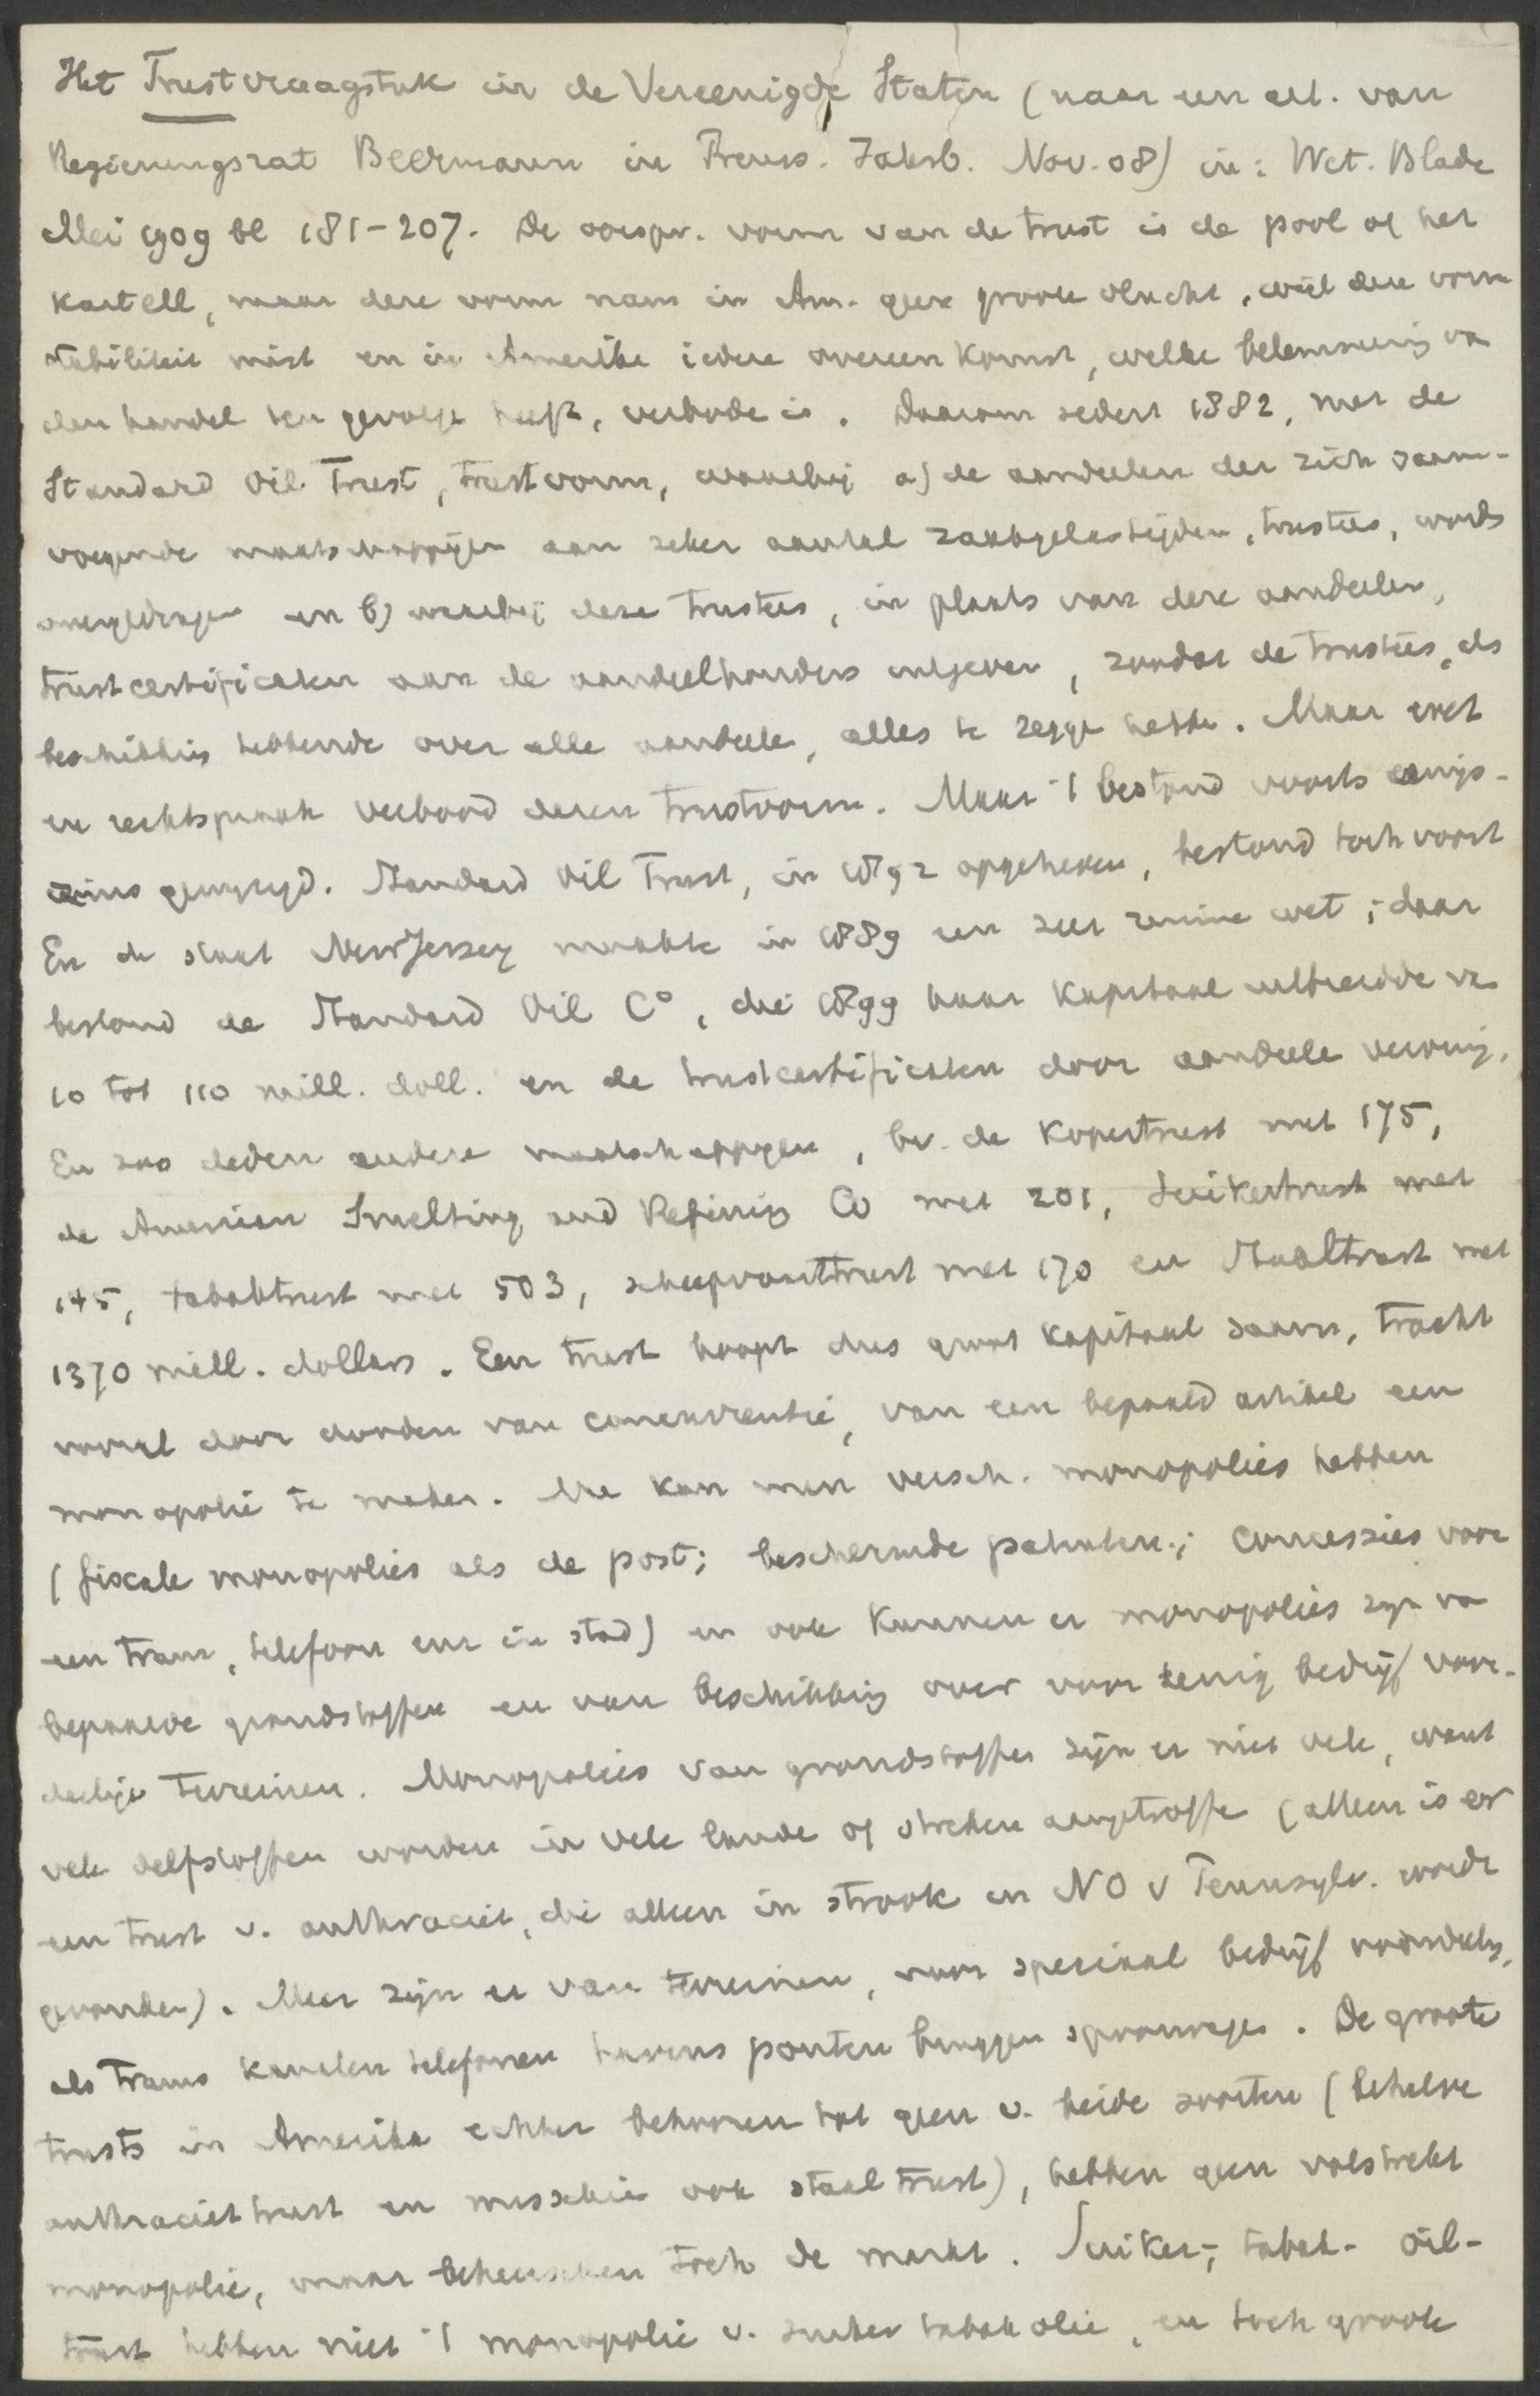 Het Trustvraagstuk in de Vereenigde Staten (naar een art. van
Regierungsrat Beermann in Preuss. Jahrb. Nov. 08) in: Wet. Blade
Mei 1909 bl 181-207. De oorspr. vorm van de trust is de pool of het
kartell, maar deze vorm nam in Am. geen groote vlucht, wijl deze vorm
stabiliteit mist en in Amerika iedere overeenkomst, welke belemmering va
den handel ten gevolge heeft, verbode is. Daarom sedert 1882, met de
Standard Oil Trust, trustvorm, waarbij a) de aandeelen der zich saam-
voegende maatschappijen aan zeker aantal zaakgelastigden, trustees, words
overgedrage en b) waarbij deze trustees, in plaats van deze aandeelen,
trustcertificaten aan de aandeelhouders uitgeven, zoodat de trustees, als
beschikking hebbende over alle aandeele, alles te zegge hebbe. Maar wet
en rechtspraak verbood dezen trustvorm. Maar 't bestond voorts eenigs-
zins gewijzigd. Standard Oil Trust, in 1892 opgeheven, bestond toch voort
En de staat New Jersey maakte in 1889 een zeer ruime wet; daar
bestond de Standard Oil C°, die 1899 haar kapitaal uitbreidde va
10 tot 110 mill. doll. en de trustcertificaten door aandeele vervang.
En zoo deden andere maatschappijen, bv. de Kopertrust met 175,
de American Smelting and Refining Co met 201, Suikertrust met
145, tabaktrust met 503, scheepvaarttrust met 170 en Staaltrust met
1370 mill. dollars. Een trust hoopt dus groot kapitaal saam, tracht
vooral door dooden van concurrentie, van een bepaald artikel een
monopolie te maken. Nu kan men versch. monopolies hebben
(fiscale monopolies als de post; beschermde patenten; concessies voor
een tram, telefoon enz in stad) en ook kunnen er monopolies zijn va
bepaalde grondstoffen en van beschikking over voor eenig bedrijf voor-
deelige terreinen. Monopolies van grondstoffen zijn er niet vele, want
vele delfstoffen worden in vele lande of streken aangetroffe (alleen is er
een trust v. anthraciet, die alleen in strook in NO v Pennsylv. wordt
gevonden). Meer zijn er van terreinen, voor speciaal bedrijf voordeelig,
als trams kanalen telefonen havens ponten bruggen spoorwegen. De groote
trusts in Amerika echter behooren tot geen v. beide soorten (behalve
anthraciettrust en misschie ook staaltrust), hebben geen volstrekt
monopolie, maar beheerschen toch de markt. Suiker-, tabak- oil-
trust hebben niet 't monopolie v. suiker tabak olie, en toch groote